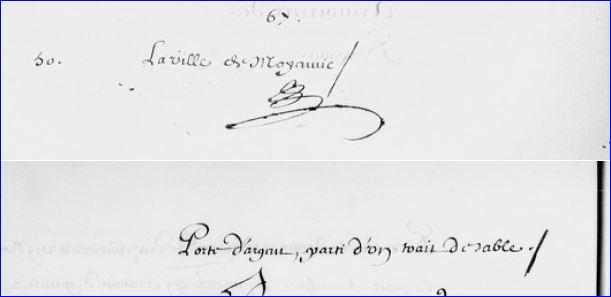 67.
50. La ville de Moyenvic
Porte d'argent, parti d'un trait de sable.